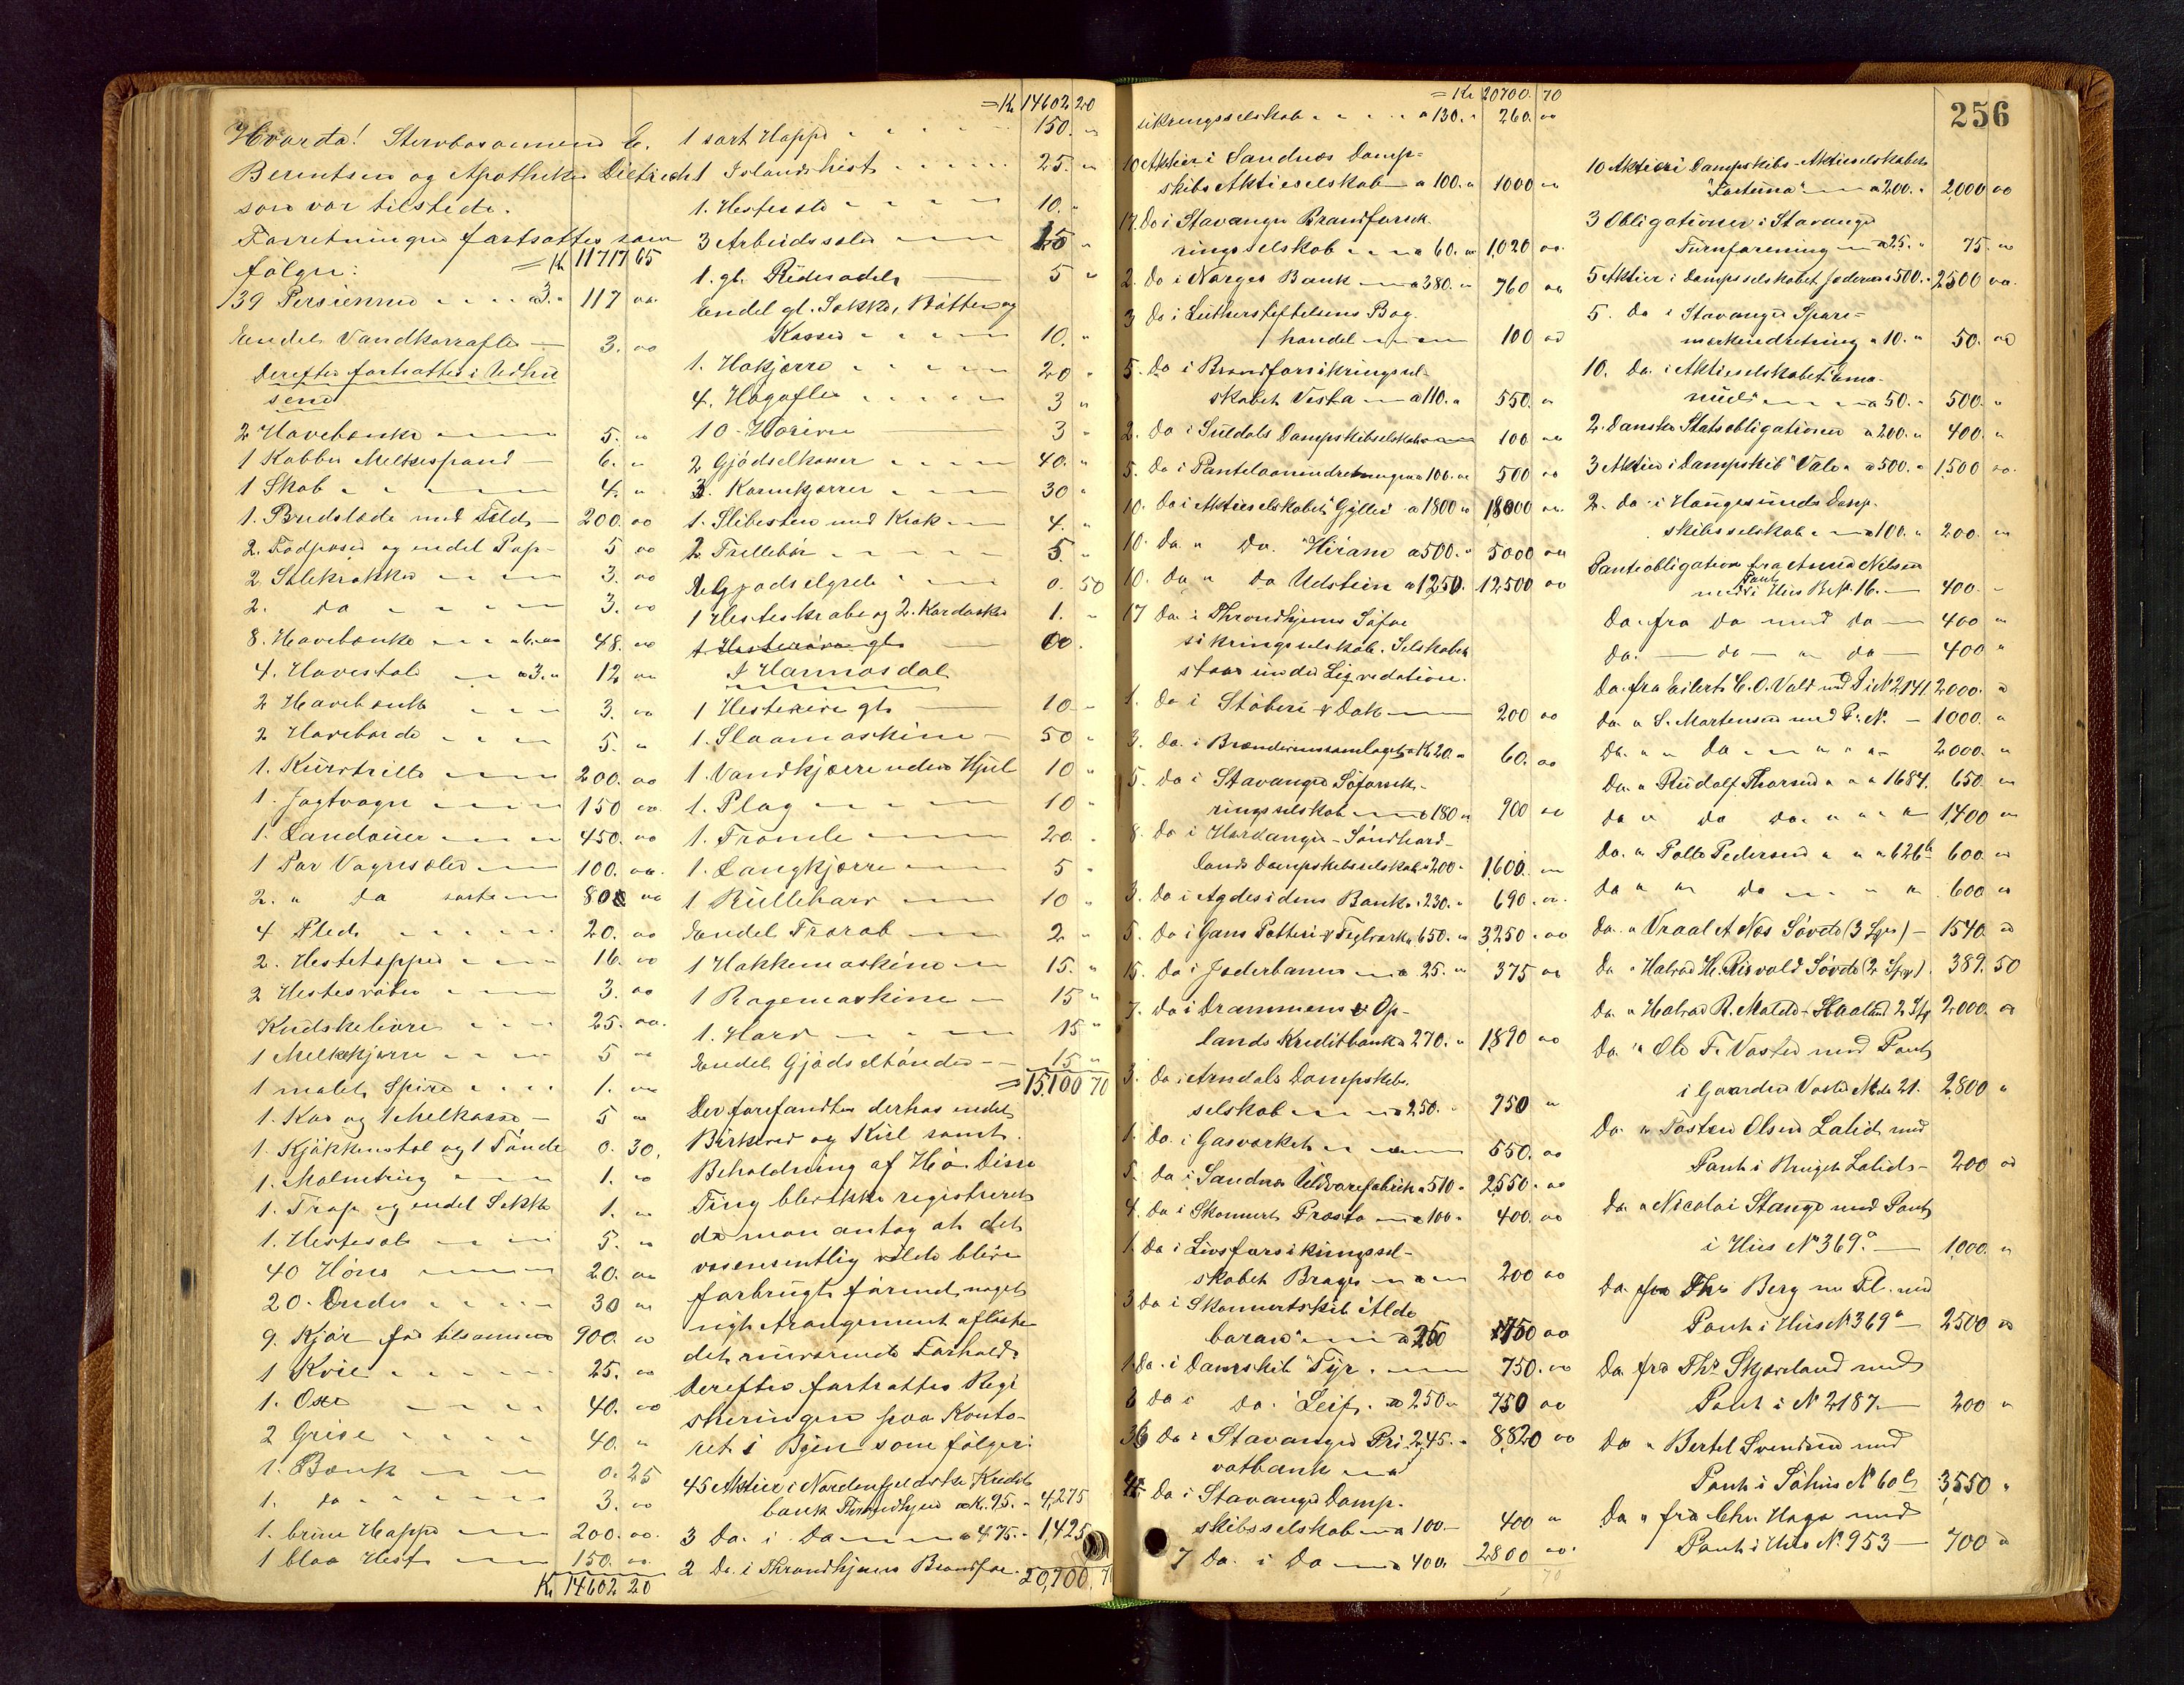 Hvorda! Stervbosønnen E.
Berentsen og Apotheker Dietrich
som var tilstede.
Forretningen fortsattes som
følger: = Kr 11717 65
39 Persienner " " " a 3. " 117 oo
Endel Vandkarafler — 3. oo
Derefter fortsattes i Udhu
sene
2 Havebænke 5. oo
1 Kobber Melkespand 6. "
1 Skab 4. "
1. Bredslæde med Feld 200. oo
2. Fodposer og endel Pap 5 oo
2 Salekrakker 3. oo
2. do 3. oo
8. Havebænke a 6. oo 48. oo
4. Havestole a 3. " 12 oo
2 Havebænk 3. oo
2 Haveborde 5. "
1. Kurvtrille 200. oo
1. Jagtvogn 150 oo
1. Landauer 450. oo
1 Par Vognsæler 100. oo
2. " do sorte 80 oo
4 Pleds 20. oo
2. Hestetepper 16. oo
2 Hesteraaber 3. oo
Kudskeliore 25. oo
1 Melkekjærre 5 oo
1 malet Spire 1. oo
1. Kar og 1 Melkasse 5 oo
1. Kjøkkenstol og 1 Tønde 0. 30.
1. Malmtrug 1. oo
1. Trap og endel Sekke 1. "
1. Hestesale 5. "
40 Høns 20. oo
20. Ender 30 oo
9. Kjør for tilsammen 900. oo
1 Kvie 25. oo
1. Oxe 40. oo
2 Grise 40. "
1. Bænk 0. 25
1. do 3. oo
1. brun Hoppe 200. oo.
1 blaa Hest 150. oo.
Kr 14602 20
= Kr 14602 20
1 sort Hoppe 150. "
1 Islandshest 25. "
1. Hestesele 10. "
3 Arbeidsseler 15 "
1. gl. Ridesadel 5 "
endel gl. Sekke, Bøtter og
Kasser 10. "
1. Høkjærre 20 "
4. Høgafler 3 "
10 Høriver 3 "
2 Gjødselkasser 40. "
3. Karmkjærrer 30 "
1. Slibesten med Krak 4. "
2 Trillebør 5. "
1 Gjødselgreb 0. 50
1 Hesteskrabe og 2. Kardæsker 1. "
1. Hesterive gl. oo.
I Hannasdal
1 Hesterive gl. 10 "
1. Slaamaskine 50 "
1. Vandkjærre uden Hjul 10 "
1. Plog 10 "
1. Tromle 20. "
1. Langkjærre 5 "
1 Rulleharv 10 "
Endel Trærab 2 "
1 Hakkemaskine 15. "
1 Ragemaskine 15 "
1. Harv 15 "
Endel Gjødseltønder 15 "
= 15100 70
Der forefandtes derhos endel
Birkeved og Kul samt
Beholdning af Hø. Disse
Ting blev ikke registreret
da man antog at det
væsentlig vilde blive
forbrugt førend noget
nyt Arangement afløste
det nuværende Forhold.
Derefter fortsattes Regi
streringen paa Konto-
ret i Byen som følger:
45 Aktier i Nordenfjeldske Kredit
bank Throndhjem a Kr. 95. " 4,275
3 Do. i Do a 475. " 1,425
2 Do. i Throndhjems Brandfor- 20,700. 7
= Kr 20700. 70
sikringsselskab a 130. " 260. oo
10 Aktier i Sandnes Damp-
skibs Aktieselskab a 100. " 1000 "
17. Do i Stavanger Brandforsik
ringsselskab a 60. " 1,020 oo.
2. Do i Norges Bank a 380. " 760 oo
3 Do i Lutherstiftelsens Bog-
handel 100 oo
5. Do i Brandforsikringssel-
skabet Vesta a 110. " 550. "
2. Do i Suldals Dampskibselskab 100 oo
5. Do i Pantelaanindretningen a 100. oo 500 oo
10. Do i Aktieselskabet "Gyller" a 1800 " 18000 oo.
10. Do. " Do. "Hiram a 500. " 5000 oo
10. Do " do Udstein a 1250. 12500 oo
17 Do i Throndhjems Søfor
sikringsselskab. Selskabet
staar under Liqvidation.
1. Do i Støberi & Dok 200 oo
3. Do. i Brænderiinteressentskabet a Kr 20. " 60. oo
5. Do i Stavanger Søforsik-
ringsselskab a 180 " 900 oo
8. Do i Hardanger-Søndhord-
lands Dampskibsselskab a 200 " 1,600. "
3. Do i Agdesidens Bank a 230. " 690. oo.
5. Do i Gans Potteri & Teglværk a 650. " 3,250. oo
15. Do i Jæderbanen a 25. " 375 oo
7. Do i Drammens & Op-
lands Kreditbank a 270. " 1,890 oo
3. Do i Arndals Dampskibs-
selskab a 250. " 750 "
1. Do. i Gasværket 550. oo
5. Do i Sandnes Uldvarefabrik a 510 " 2,550. oo
4. Do i Skonnert Presto a 100 " 400. oo
1. Do i Livsforsikringssel-
skabet Brage 200 oo
3 Do i Skonnertskib "Alde
baran" a 250 750 oo
1. Do. i Dampskib "Tyr. 750. oo
3 Do i Do. "Leif. a 250. " 750 oo
36 Do i Stavanger Pri- 245. " 8,820 oo
vatbank
4. Do i Stavanger Damp-
skibsselskab a 100 400 "
7 Do. i Do a 400. 2800 oo.
70
256
10 Aktier i Dampskibs-Aktieselskabet
"Fortuna" a 200. " 2,000 oo
3 Obligationer i Stavanger
Turnforening a 25. " 75. oo
5 Aktier i Dampsselskabet Jæderen a 500. " 2,500 oo.
5. Do i Stavanger Spare-
mærkeindretning a 10. " 50. oo
10. Do. i Aktieselskabet "ama-
nuel" a 50. " 500. "
2. Danske Statsobligationer a 200. " 400. "
3 Aktier i Dampskib "Vale" a 500. " 1,500 oo.
2. Do. i Haugesunds Damp-
skibsselskab a 100. " 200. "
Panteobligation fra Anna Nilsen
med Pant i Hus B. No. 16. 400. "
Do. fra Do med do 400 "
Do. — do — " do — 400 "
Do. fra Eilert C. O. Vold med P. i No 2141 2000. "
Do. " S. Martensen med P. i No. 1000. "
Do. " " Do. 2000. "
Do. " Rudolf Thorsen " " " 1684. 650. "
Do " do do. " " " 1,400 "
Do. " Palle Pedersen " " " 626 b 600. "
Do " " do " " " 600 "
Do. " Vraal A Næs Søvde (3 Lgr) — 1540. "
Do " Halvard H. Risvold Søvde (2 Lgr) 389. 50
Do. " Halvard R. Molde-Haaland 2 Lgr 2000. oo
Do. " Ole T. Vaste med Pant
i Gaarden Vaste M No 21. 2800 "
Do. " Tosten Olsen Lalid med
Pant i Bruget Lalids 200 oo
Do " Nicolai Stange med Pant
i Hus No 369.a — 1,000. "
Do. fra Ths Berg m Fl. med
Pant i Hus No 369a — 2500 oo
Do. fra Ths. Skjæveland med
Pant i No 2187. 200 "
Do " Bertel Svendsen med
Pant i Søhus No 60 c 3,550 "
Do " fra Chr. Haga med
Pant i Hus No. 953 — 700 "